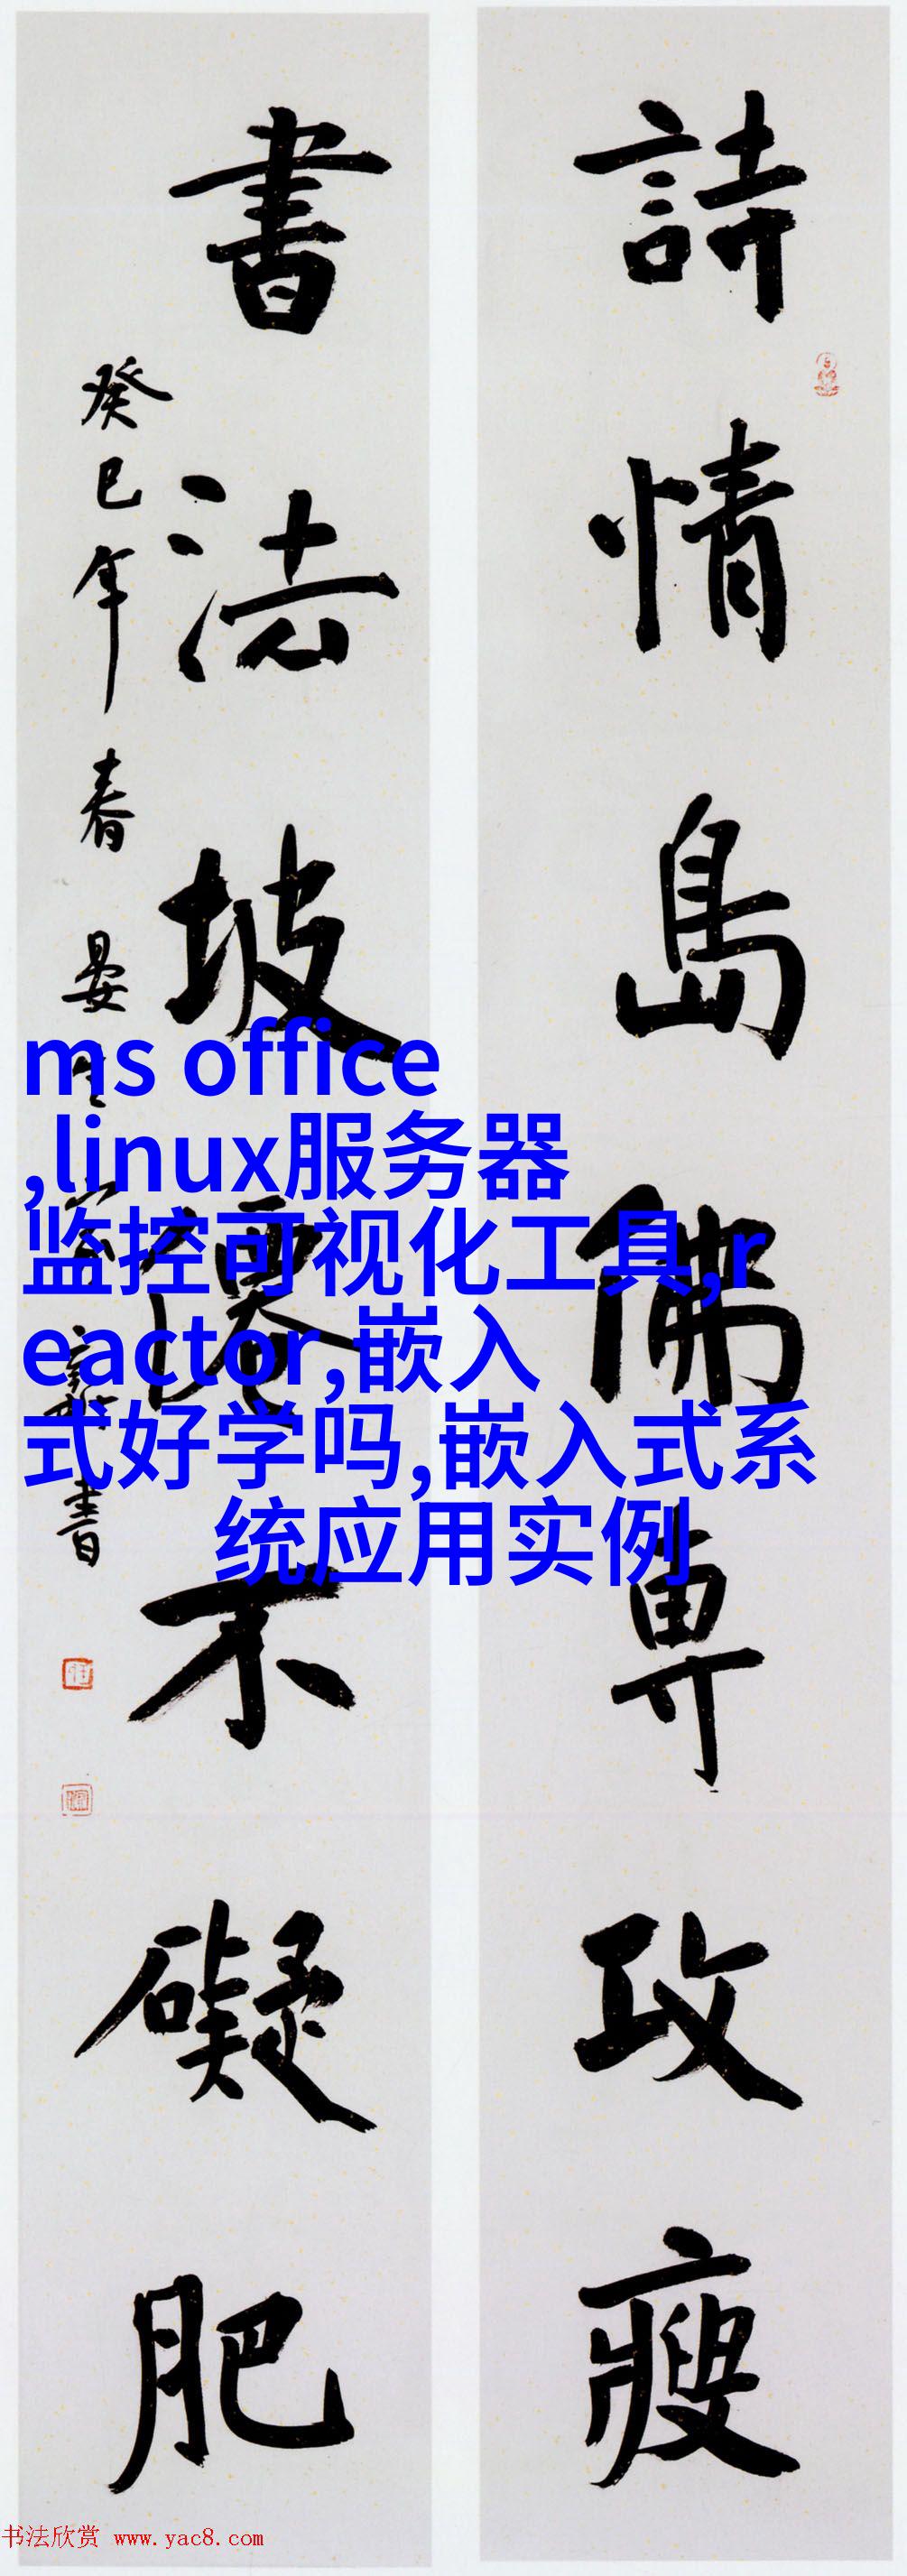 詩情島佛專攻瘦
書法坡僊不礙肥
癸巳年春晏
書
ms office
,linux服务器
监控可视化工具,r
eactor,嵌入
式好学吗,嵌入式系
统应用实例
书法欣赏 www.yac8.com